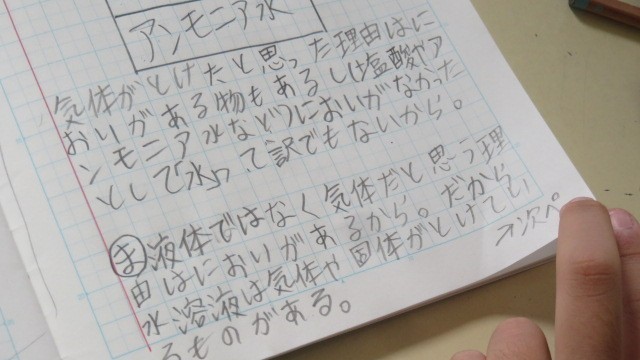 アンモニア水
気体がとけたと思った理由はに
おいがある物もあるし塩酸やア
ンモニア水などにおいがなかった
として水って訳でもないから。
ま 液体ではなく気体だと思う理
由はにおいがあるから。だから
水溶液は気体や固体がとけてい
るものがある。
→次ペ